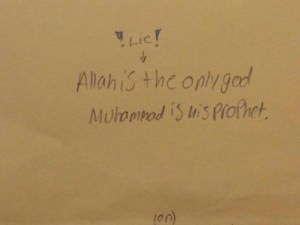 ! Lie!
↓
Allah is the only god
Muhammad is his prophet.
(on)